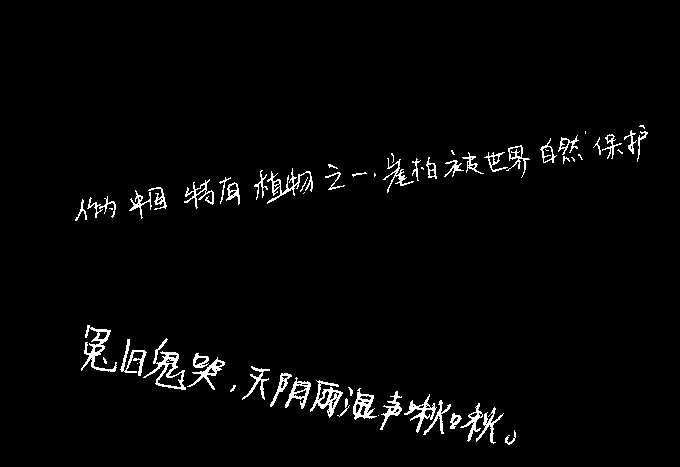 作为中国特有植物之一,崖柏被世界自然保护
冤旧鬼哭,天阴雨湿声啾啾。